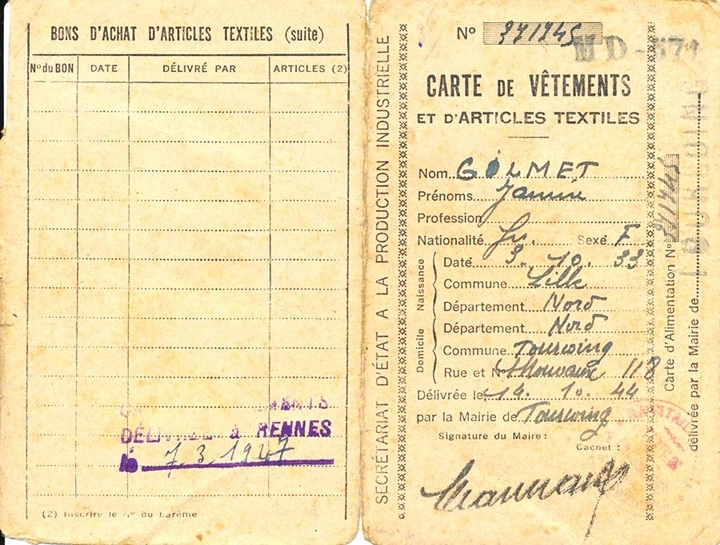 BONS D'ACHAT D'ARTICLES TEXTILES (suite)
Nº du BON DATE DÉLIVRÉ PAR ARTICLES (2)
DÉLIVRÉE à RENNES
le 7.3.1947
(2) Inscrire le nº du barème
SECRÉTARIAT D'ÉTAT A LA PRODUCTION INDUSTRIELLE
Nº 371745
MD-571
CARTE DE VÊTEMENTS
ET D'ARTICLES TEXTILES
Nom GOLMET
Prénoms Janine
Profession
Nationalité fr. Sexe F
Naissance
Date 9.10.33
Commune Lille
Département Nord
Domicile
Département Nord
Commune Tourcoing
Rue et Nº Mouvaux 118
Délivrée le 14.10.44
par la Mairie de Tourcoing
Signature du Maire :
Cachet :
Carte d'Alimentation Nº 371745
délivrée par la Mairie de